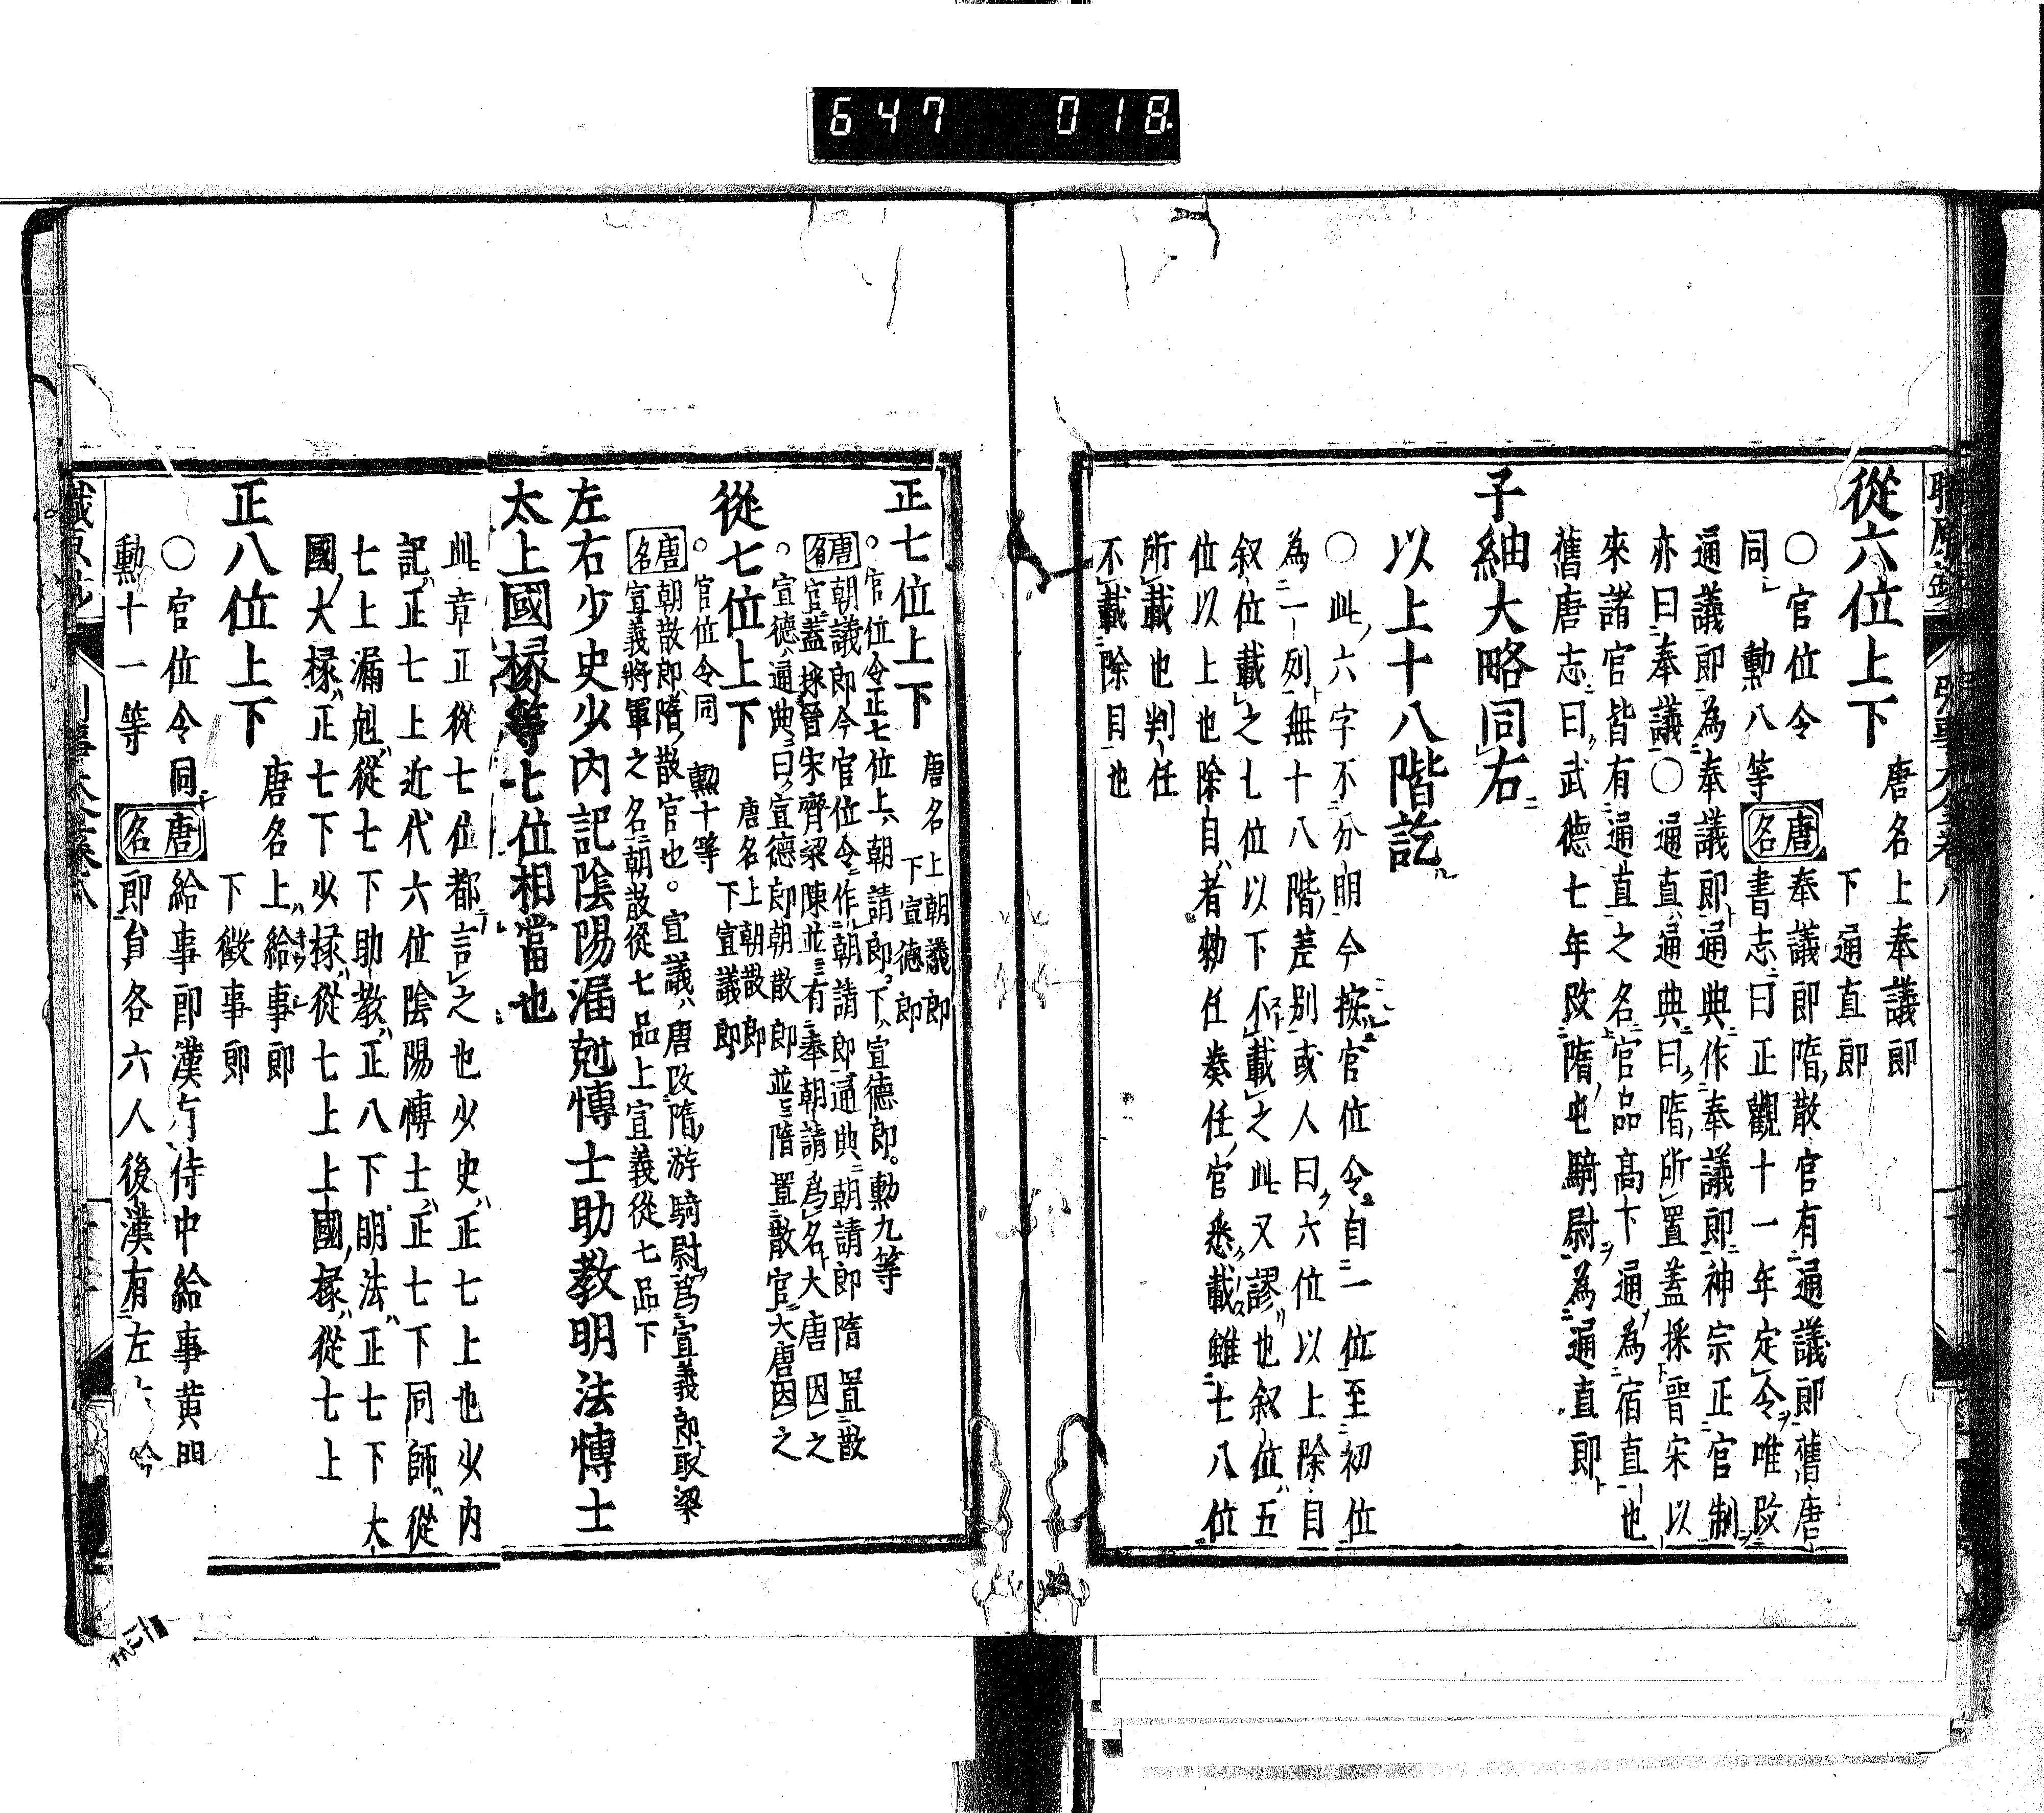 647 018
從六位上下 唐名上奉議郎
下通直郎
○官位令同 勳八等 唐名 奉議郎隋散官有通議郎舊唐
書志曰正觀十一年定令唯改
通議郎為奉議郎通典作奉議郎神宗正官制
亦曰奉議○通直通典曰隋所置蓋採晋宋以
來諸官皆有通直之名官品高下通為宿直也
舊唐志曰武德七年改隋屯騎尉為通直郎
子細大略同右
以上十八階訖
○此六字不分明今按官位令自一位至初位
為一列無十八階差別或人曰六位以上除目
叙位載之七位以下不載之此又謬也叙位五
位以上也除目者勅任奏任官悉載雖七八位
所載也判任
不載除目也
正七位上下 唐名上朝議郎
下宣德郎
○官位令正七位上朝請郎下宣德郎○勳九等
唐名 朝議郎今官位令作朝請郎通典朝請郎隋置散
官蓋採晉宋齊梁陳並有奉朝請為名大唐因之
○宣德通典曰宣德郎朝散郎並隋置散官大唐因之
從七位上下 唐名上朝散郎
下宣議郎
○官位令同 勲十等
唐名 朝散郎隋散官也○宣議唐改隋游騎尉為宣義郎取梁
宣義將軍之名朝散從七品上宣義從七品下
左右少史少内記陰陽漏尅愽士助教明法愽士
太上國掾等七位相當也
此章正從七位都言之也少史正七上也少内
記正七上近代六位陰陽愽士正七下同師從
七上漏尅從七下助教正八下明法正七下大
國大掾正七下少掾從七上上國掾從七上
正八位上下 唐名上給事郎
下徵事郎
○官位令同 唐名 給事郎漢有侍中給事黄門
勳十一等 郎員各六人後漢有左